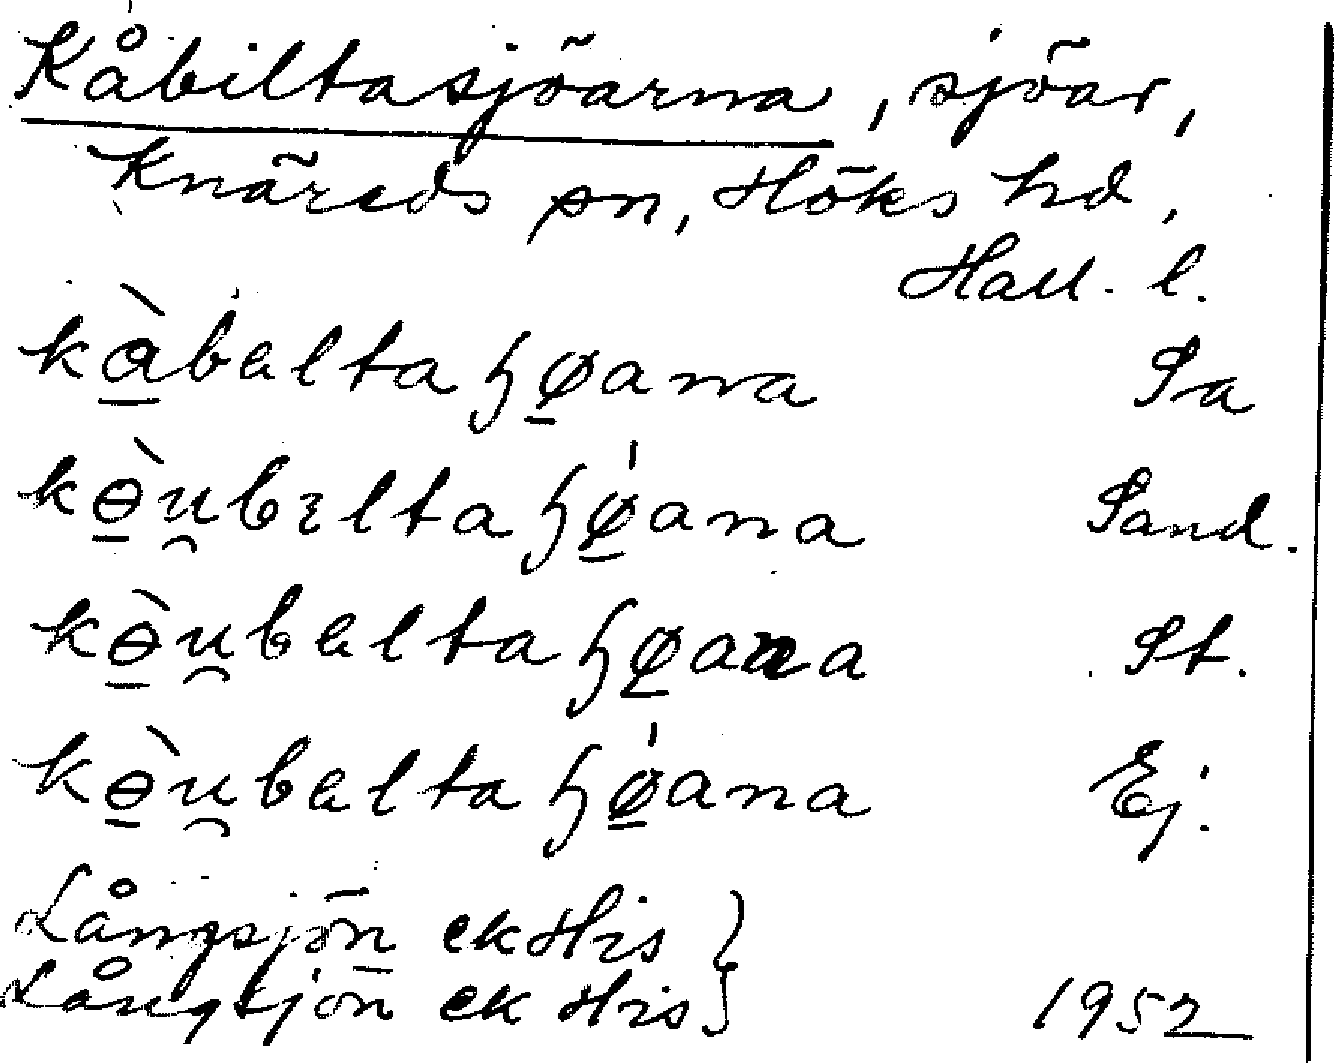 Kåbiltasjöarna, sjöar,
Knäreds sn, Höks hd,
Hall. l.
kàbaltaɧøana Sa
kɵ̀u̯bɪltaɧø̍ana Sand.
kɵ̀u̯baltaɧøana St.
kɵ̀u̯baltaɧø̍ana Ej.
Långsjön ek His }
Långsjön ek His } 1952